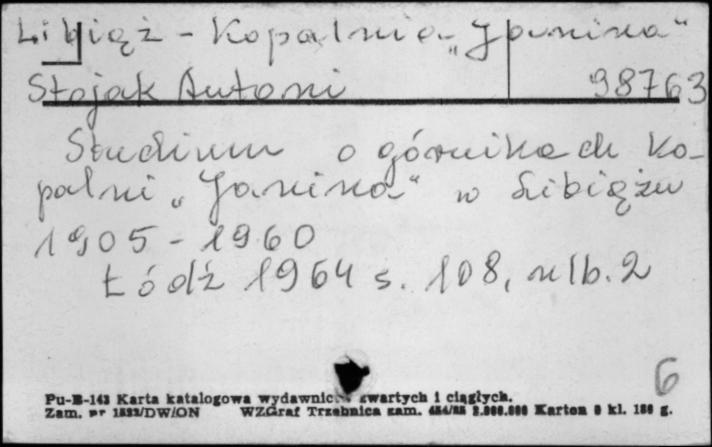 Libiąż - Kopalnia „Janina"
Stojak Antoni 98763
Studium o górnikach Ko-
palni „Janina" w Libiążu
1905 - 1960
Łódź 1964 s. 108, nlb. 2
6
Pu-B-143 Karta katalogowa wydawnictw zwartych i ciągłych.
Zam. nr 1532/DW/ON WZGraf Trzebnica zam. Karton kl. g.